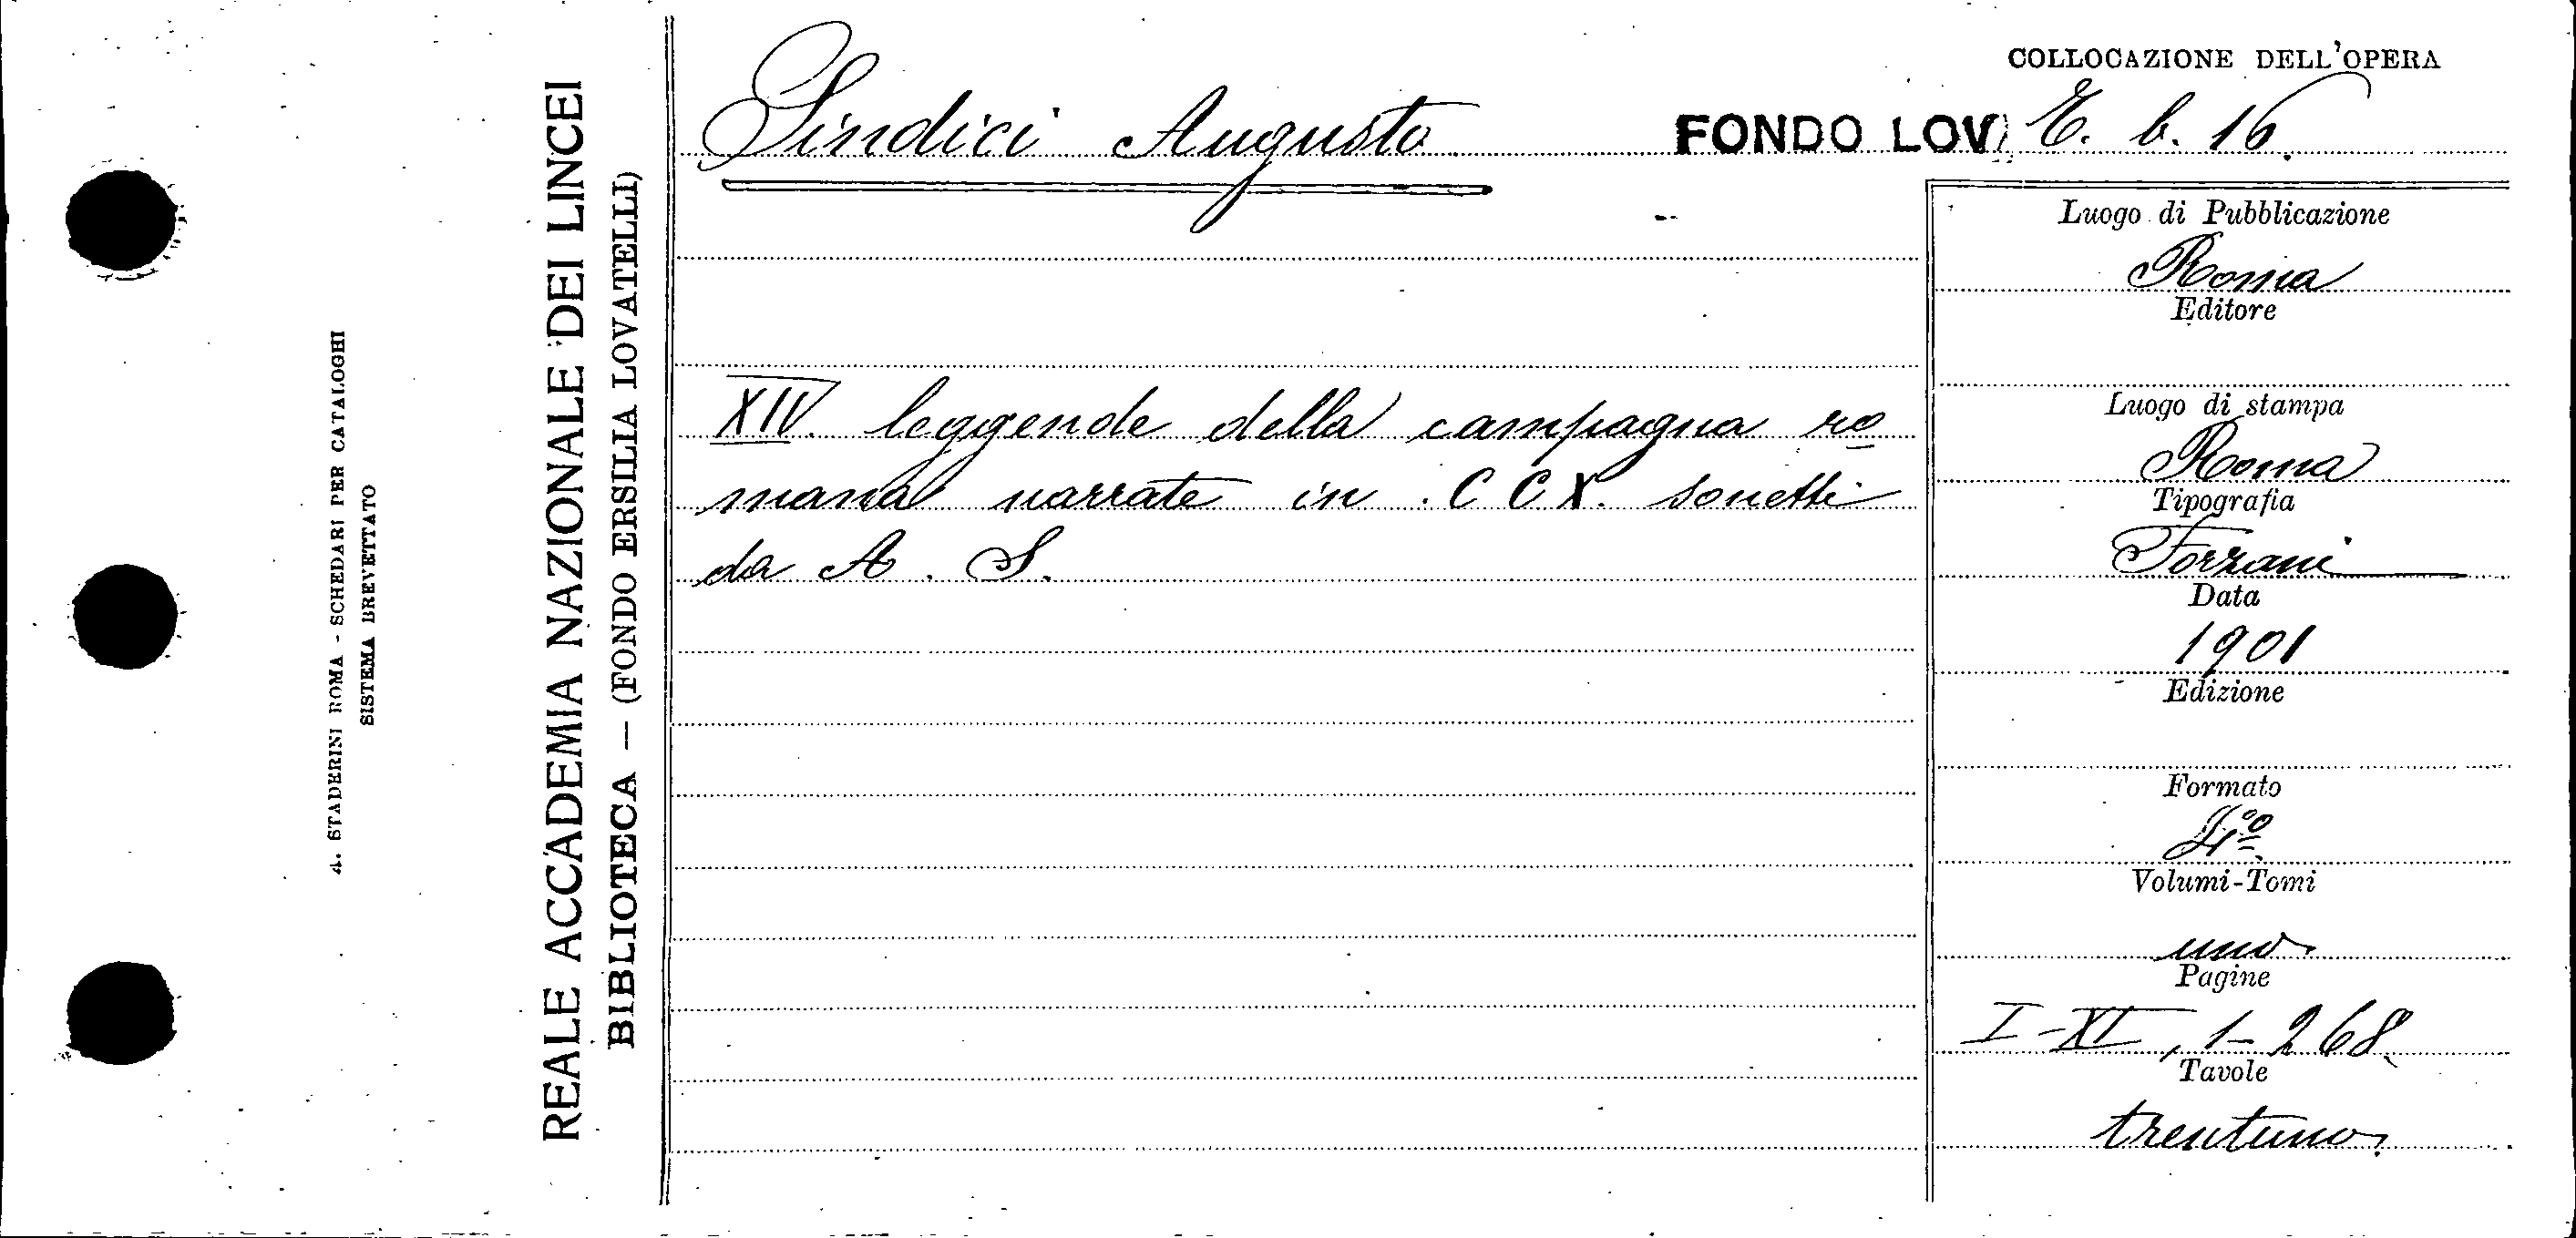 4. STADERINI ROMA - SCHEDARI PER CATALOGHI
SISTEMA BREVETTATO
REALE ACCADEMIA NAZIONALE DEI LINCEI
BIBLIOTECA — (FONDO ERSILIA LOVATELLI)
Sindici Augusto
XIV. leggende della campagna ro
mana narrate in . C C X. sonetti
da A. S.
COLLOCAZIONE DELL'OPERA
FONDO LOV. E. b. 16.
Luogo di Pubblicazione
Roma
Editore
Luogo di stampa
Roma
Tipografia
Forzani
Data
1901
Edizione
Formato
4º
Volumi-Tomi
uno
Pagine
I-XI, 1-268.
Tavole
trentuno.